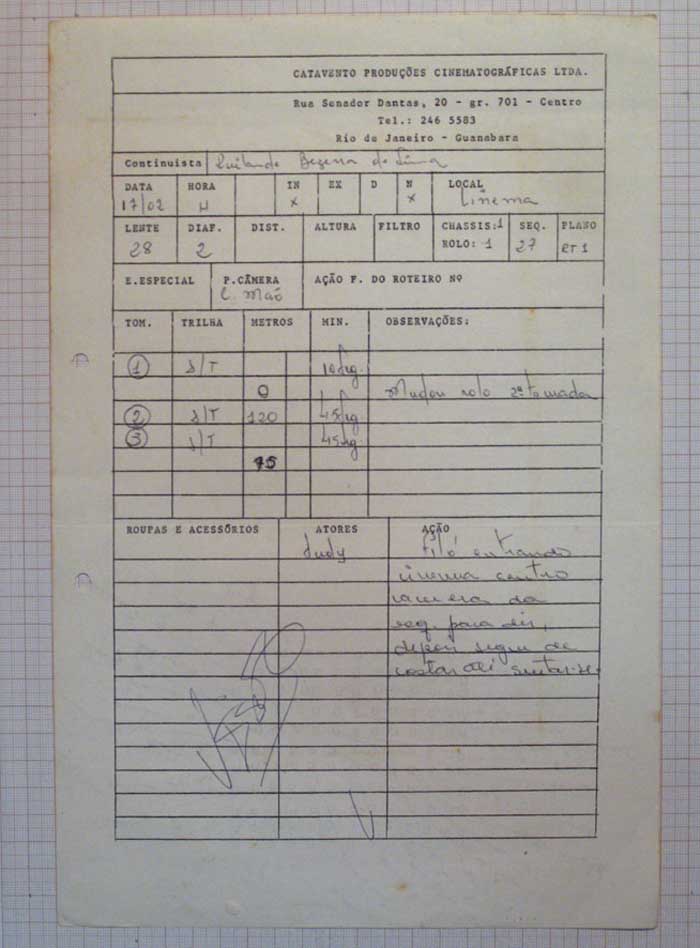 CATAVENTO PRODUÇÕES CINEMATOGRÁFICAS LTDA.
Rua Senador Dantas, 20 - gr. 701 - Centro
Tel.: 246 5583
Rio de Janeiro - Guanabara
Continuista Bezerra de Lima
DATA HORA IN EX D N LOCAL
17/02 x x Cinema
LENTE DIAF. DIST. ALTURA FILTRO CHASSIS:1 SEQ. PLANO
28 2 ROLO: 1 27
E.ESPECIAL P.CÂMERA AÇÃO F. DO ROTEIRO Nº
C. Mão
TOM. TRILHA METROS MIN. OBSERVAÇÕES:
1 s/T 10 seg.
0 Mudou rolo 2ª tomada
2 s/T 120 45 seg
3 s/T 45 seg
75
ROUPAS E ACESSÓRIOS ATORES AÇÃO
Judy Filó entrando
cinema contra
camera da
esq. para dir,
depois segue de
costas até sentar-se